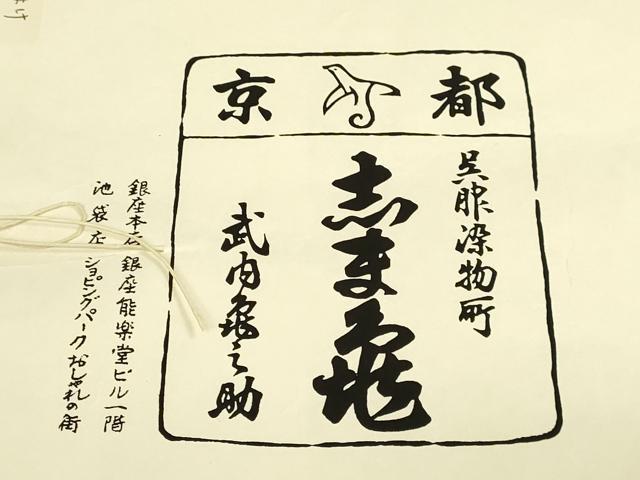 京都
呉服染物所
志ま亀
武内亀之助
銀座本店 銀座能楽堂ビル一階
池袋店 ショッピングパークおしゃれの街